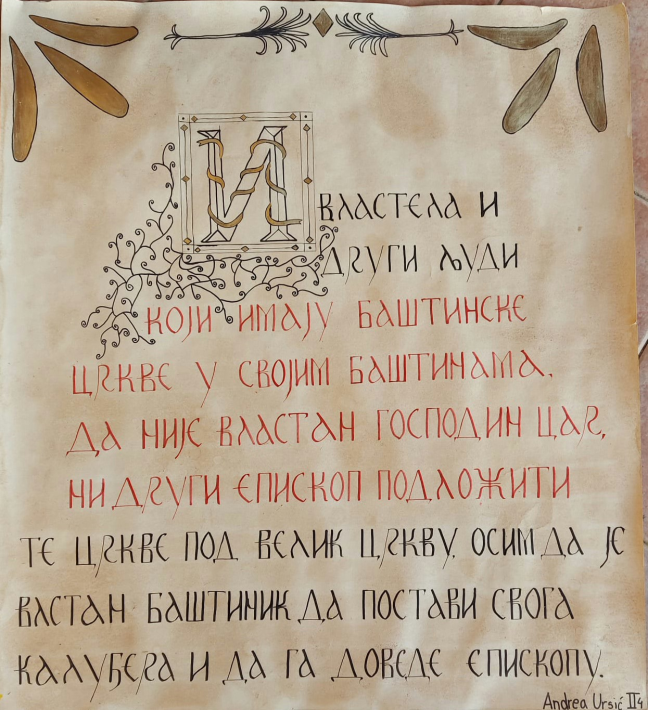 И ВЛАСТЕЛА И
ДРУГИ ЉУДИ
КОЈИ ИМАЈУ БАШТИНСКЕ
ЦРКВЕ У СВОЈИМ БАШТИНАМА,
ДА НИЈЕ ВЛАСТАН ГОСПОДИН ЦАР,
НИ ДРУГИ ЕПИСКОП ПОДЛОЖИТИ
ТЕ ЦРКВЕ ПОД ВЕЛИК ЦРКВУ. ОСИМ ДА ЈЕ
ВАСТАН БАШТИНИК ДА ПОСТАВИ СВОГА
КАЛУЂЕРА И ДА ГА ДОВЕДЕ ЕПИСКОПУ.
Andrea Ursić II4